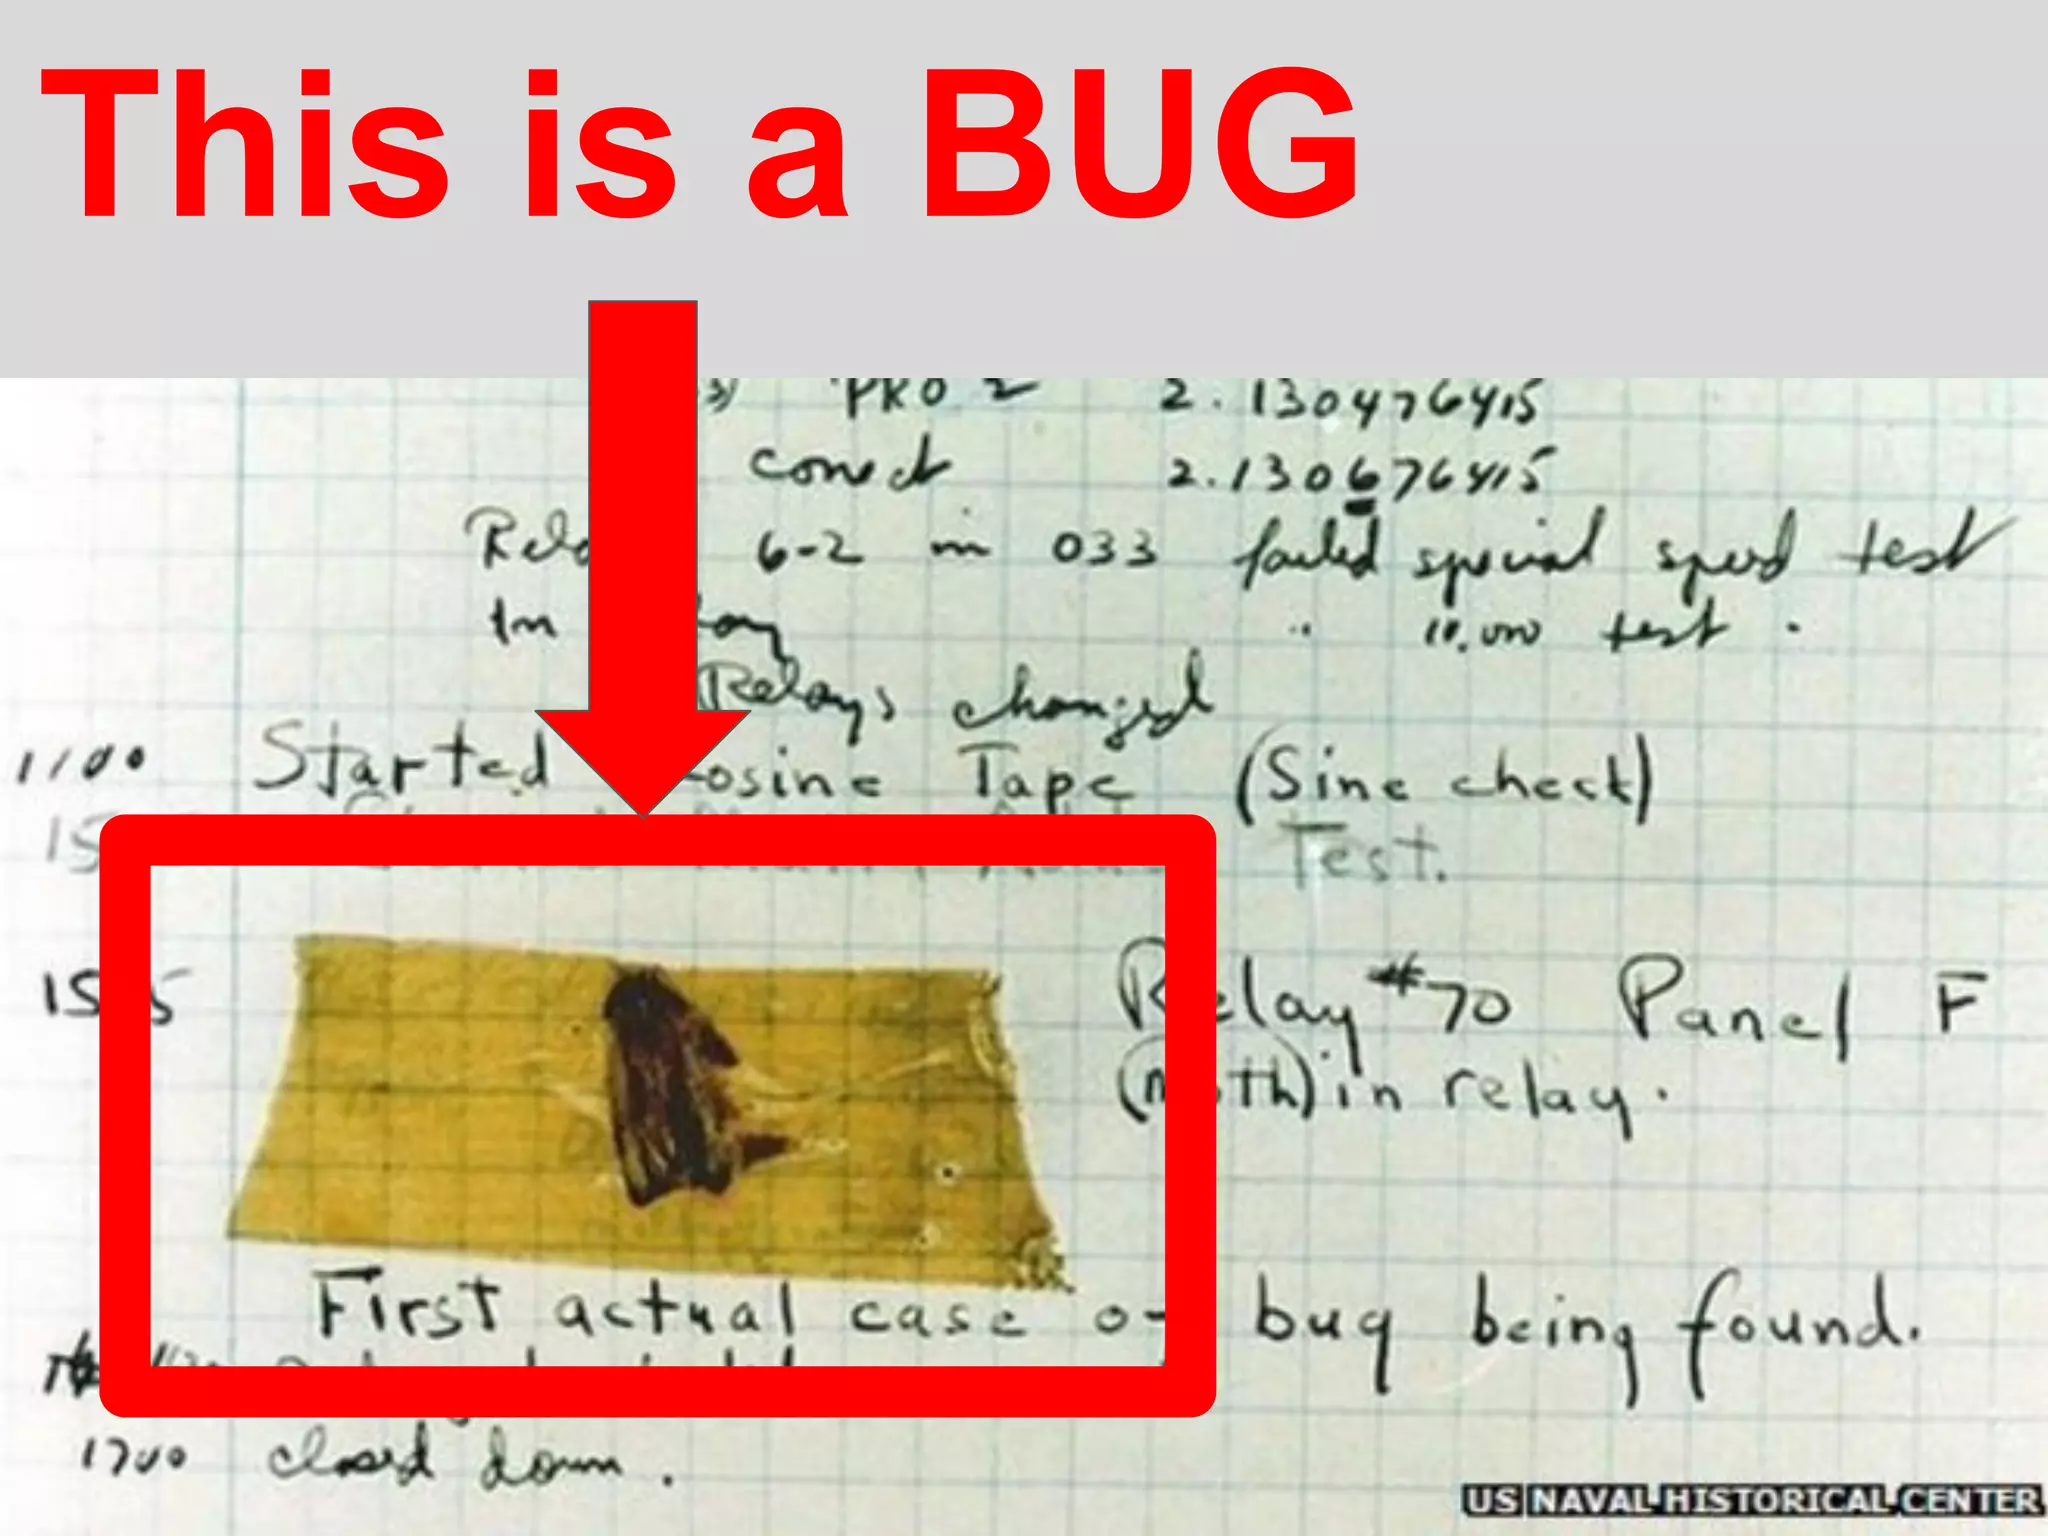 This is a BUG
PRO 2 2.130476415
conect 2.130676415
6-2 in 033 failed special speed test
In " 10.000 test .
Relays changed
1100 Started Cosine Tape (Sine check)
Test.
Relay #70 Panel F
(moth) in relay.
First actual case of bug being found.
1700 closed down.
US NAVAL HISTORICAL CENTER